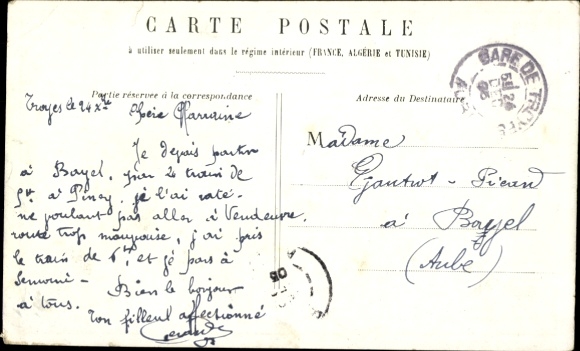 CARTE POSTALE
à utiliser seulement dans le régime intérieur (FRANCE, ALGÉRIE et TUNISIE)
Partie réservée à la correspondance
Adresse du Destinataire
GARE DE TROYES
Troyes le 24 Xbre
Chère Marraine
Je devais partir
à Bayel, par le train de
à Piney, je l'ai raté
ne voulant pas aller à Vendeuvre,
route trop mauvaise, j'ai pris
le train de 6h, et je pars à
Bien le bonjour
à tous.
Ton filleul affectionné
Madame
Gautrot - Picard
à Bayel
(Aube)